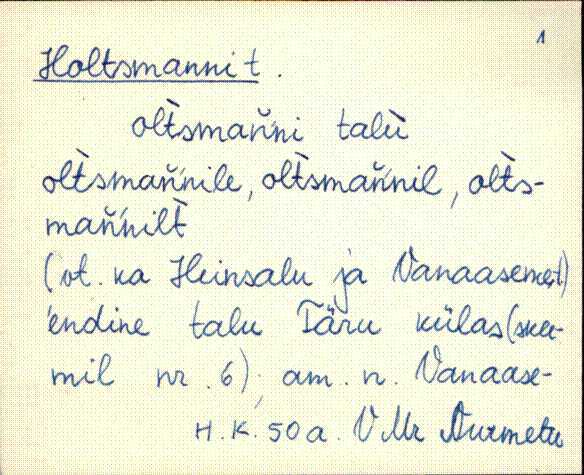 1
Holtsmanni t.
olt̀smaň́ni talù
olt̀smaň́nile, olt̀smaň́nil, olt̀s-
maň́nilt̀
(vt. ka Heinsalu ja Vanaaseme t)
endine talu Täru külas (skee-
mil nr. 6); am. n. Vanaase-
H.K. 50 a. VMr Nurmetu